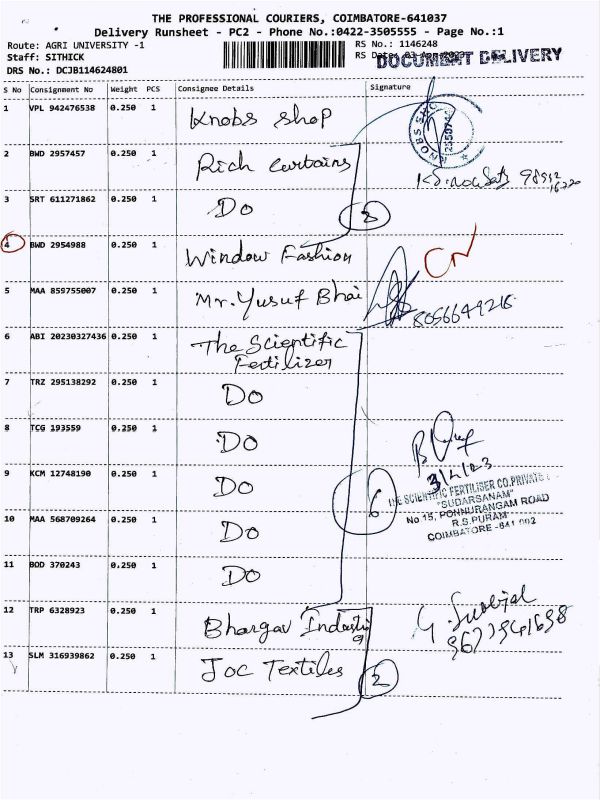 THE PROFESSIONAL COURIERS, COIMBATORE-641037
Delivery Runsheet - PC2 - Phone No.:0422-3505555 - Page No.:1
Route: AGRI UNIVERSITY -1 RS No.: 1146248
Staff: SITHICK RS Date: 03 Apr 2023 DOCUMENT DELIVERY
DRS No.: DCJB114624801
S No Consignment No Weight PCS Consignee Details Signature
1 VPL 942476538 0.250 1 Knobs shop
2 BWD 2957457 0.250 1 Rich Curtains
3 SRT 611271862 0.250 1 DO 3
4 BWD 2954988 0.250 1 Window Fashion CN
5 MAA 859755007 0.250 1 Mr. Yusuf Bhai 8056649216
6 ABI 20230327436 0.250 1 The Scientific
Fertilizer
7 TRZ 295138292 0.250 1 DO
8 TCG 193559 0.250 1 DO
3/4/23
9 KCM 12748190 0.250 1 DO 6
THE SCIENTIFIC FERTILISER CO.PRIVATE
"SUDARSANAM"
No 15, PONNURANGAM ROAD
R.S.PURAM
COIMBATORE -641 002
10 MAA 568709264 0.250 1 DO
11 BOD 370243 0.250 1 DO
12 TRP 6328923 0.250 1 Bhargav
13 SLM 316939862 0.250 1 Joc Textiles 2